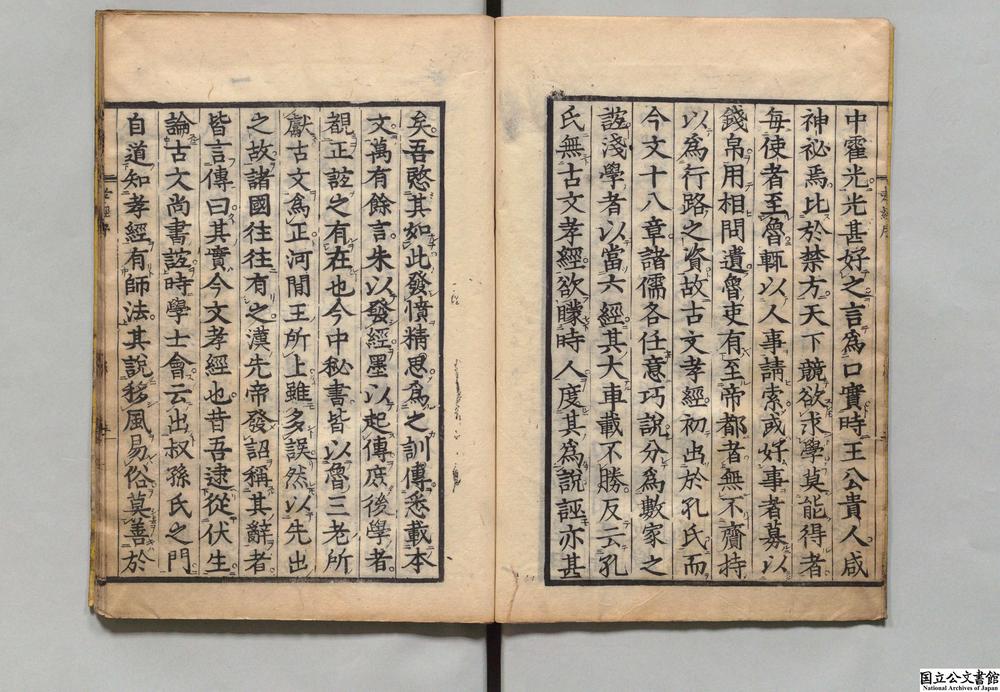 中霍光光甚好之言為口實時王公貴人咸
神祕焉比於禁方天下競欲求學莫能得者
每使者至魯輒以人事請索或好事者募以
錢帛用相問遺魯吏有至帝都者無不齎持
以為行路之資故古文孝經初出於孔氏而
今文十八章諸儒各任意巧說分為數家之
誼淺學者以當六經其大車載不勝反云孔
氏無古文孝經欲矇時人度其為說誣亦甚
矣吾愍其如此發憤精思為之訓傳悉載本
文萬有餘言朱以發經墨以起傳庶後學者
覩正誼之有在也今中秘書皆以魯三老所
獻古文為正河間王所上雖多誤然以先出
之故諸國往往有之漢先帝發詔稱其辭者
皆言傳曰其實今文孝經也昔吾逮從伏生
論古文尚書誼時學士會云出叔孫氏之門
自道知孝經有師法其說移風易俗莫善於
国立公文書館
National Archives of Japan